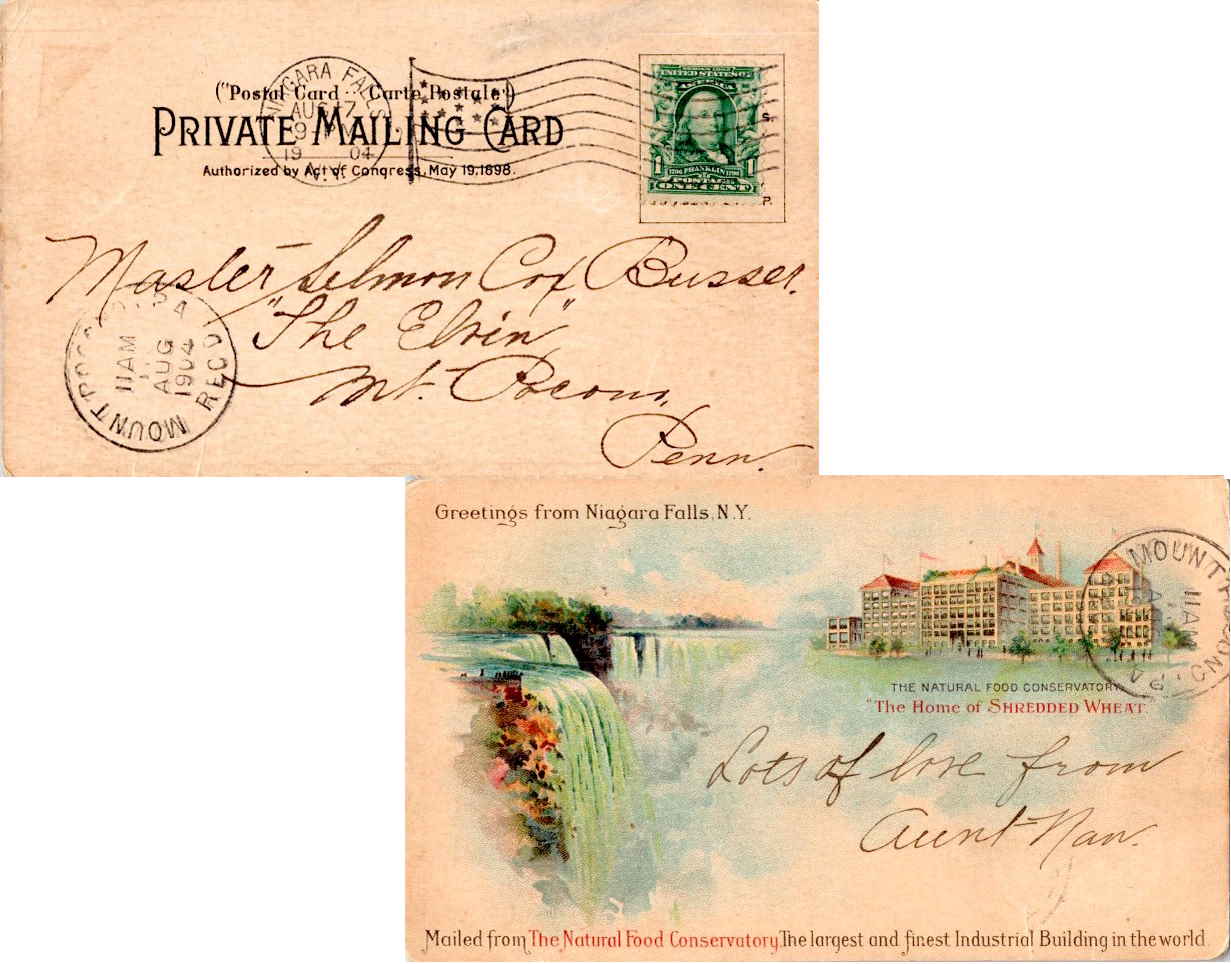 ("Postal Card - Carte Postale")
PRIVATE MAILING CARD
Authorized by Act of Congress, May 19, 1898.
NIAGARA FALLS
AUG 17
9
19 04
N.Y.
SERIES 1902
UNITED STATES OF
AMERICA
1 1706 FRANKLIN 1790 1
POSTAGE
ONE CENT
S.
P.
Master Selmon Cox Busser.
"The Elvin"
Mt. Pocono,
Penn.
MOUNT POCONO, PA
REC'D
11 AM
AUG
1904
Greetings from Niagara Falls, N.Y.
MOUNT POCONO PA
11 AM
THE NATURAL FOOD CONSERVATORY
"The Home of SHREDDED WHEAT.
Lots of love from
Aunt Nan.
Mailed from The Natural Food Conservatory. The largest and finest Industrial Building in the world